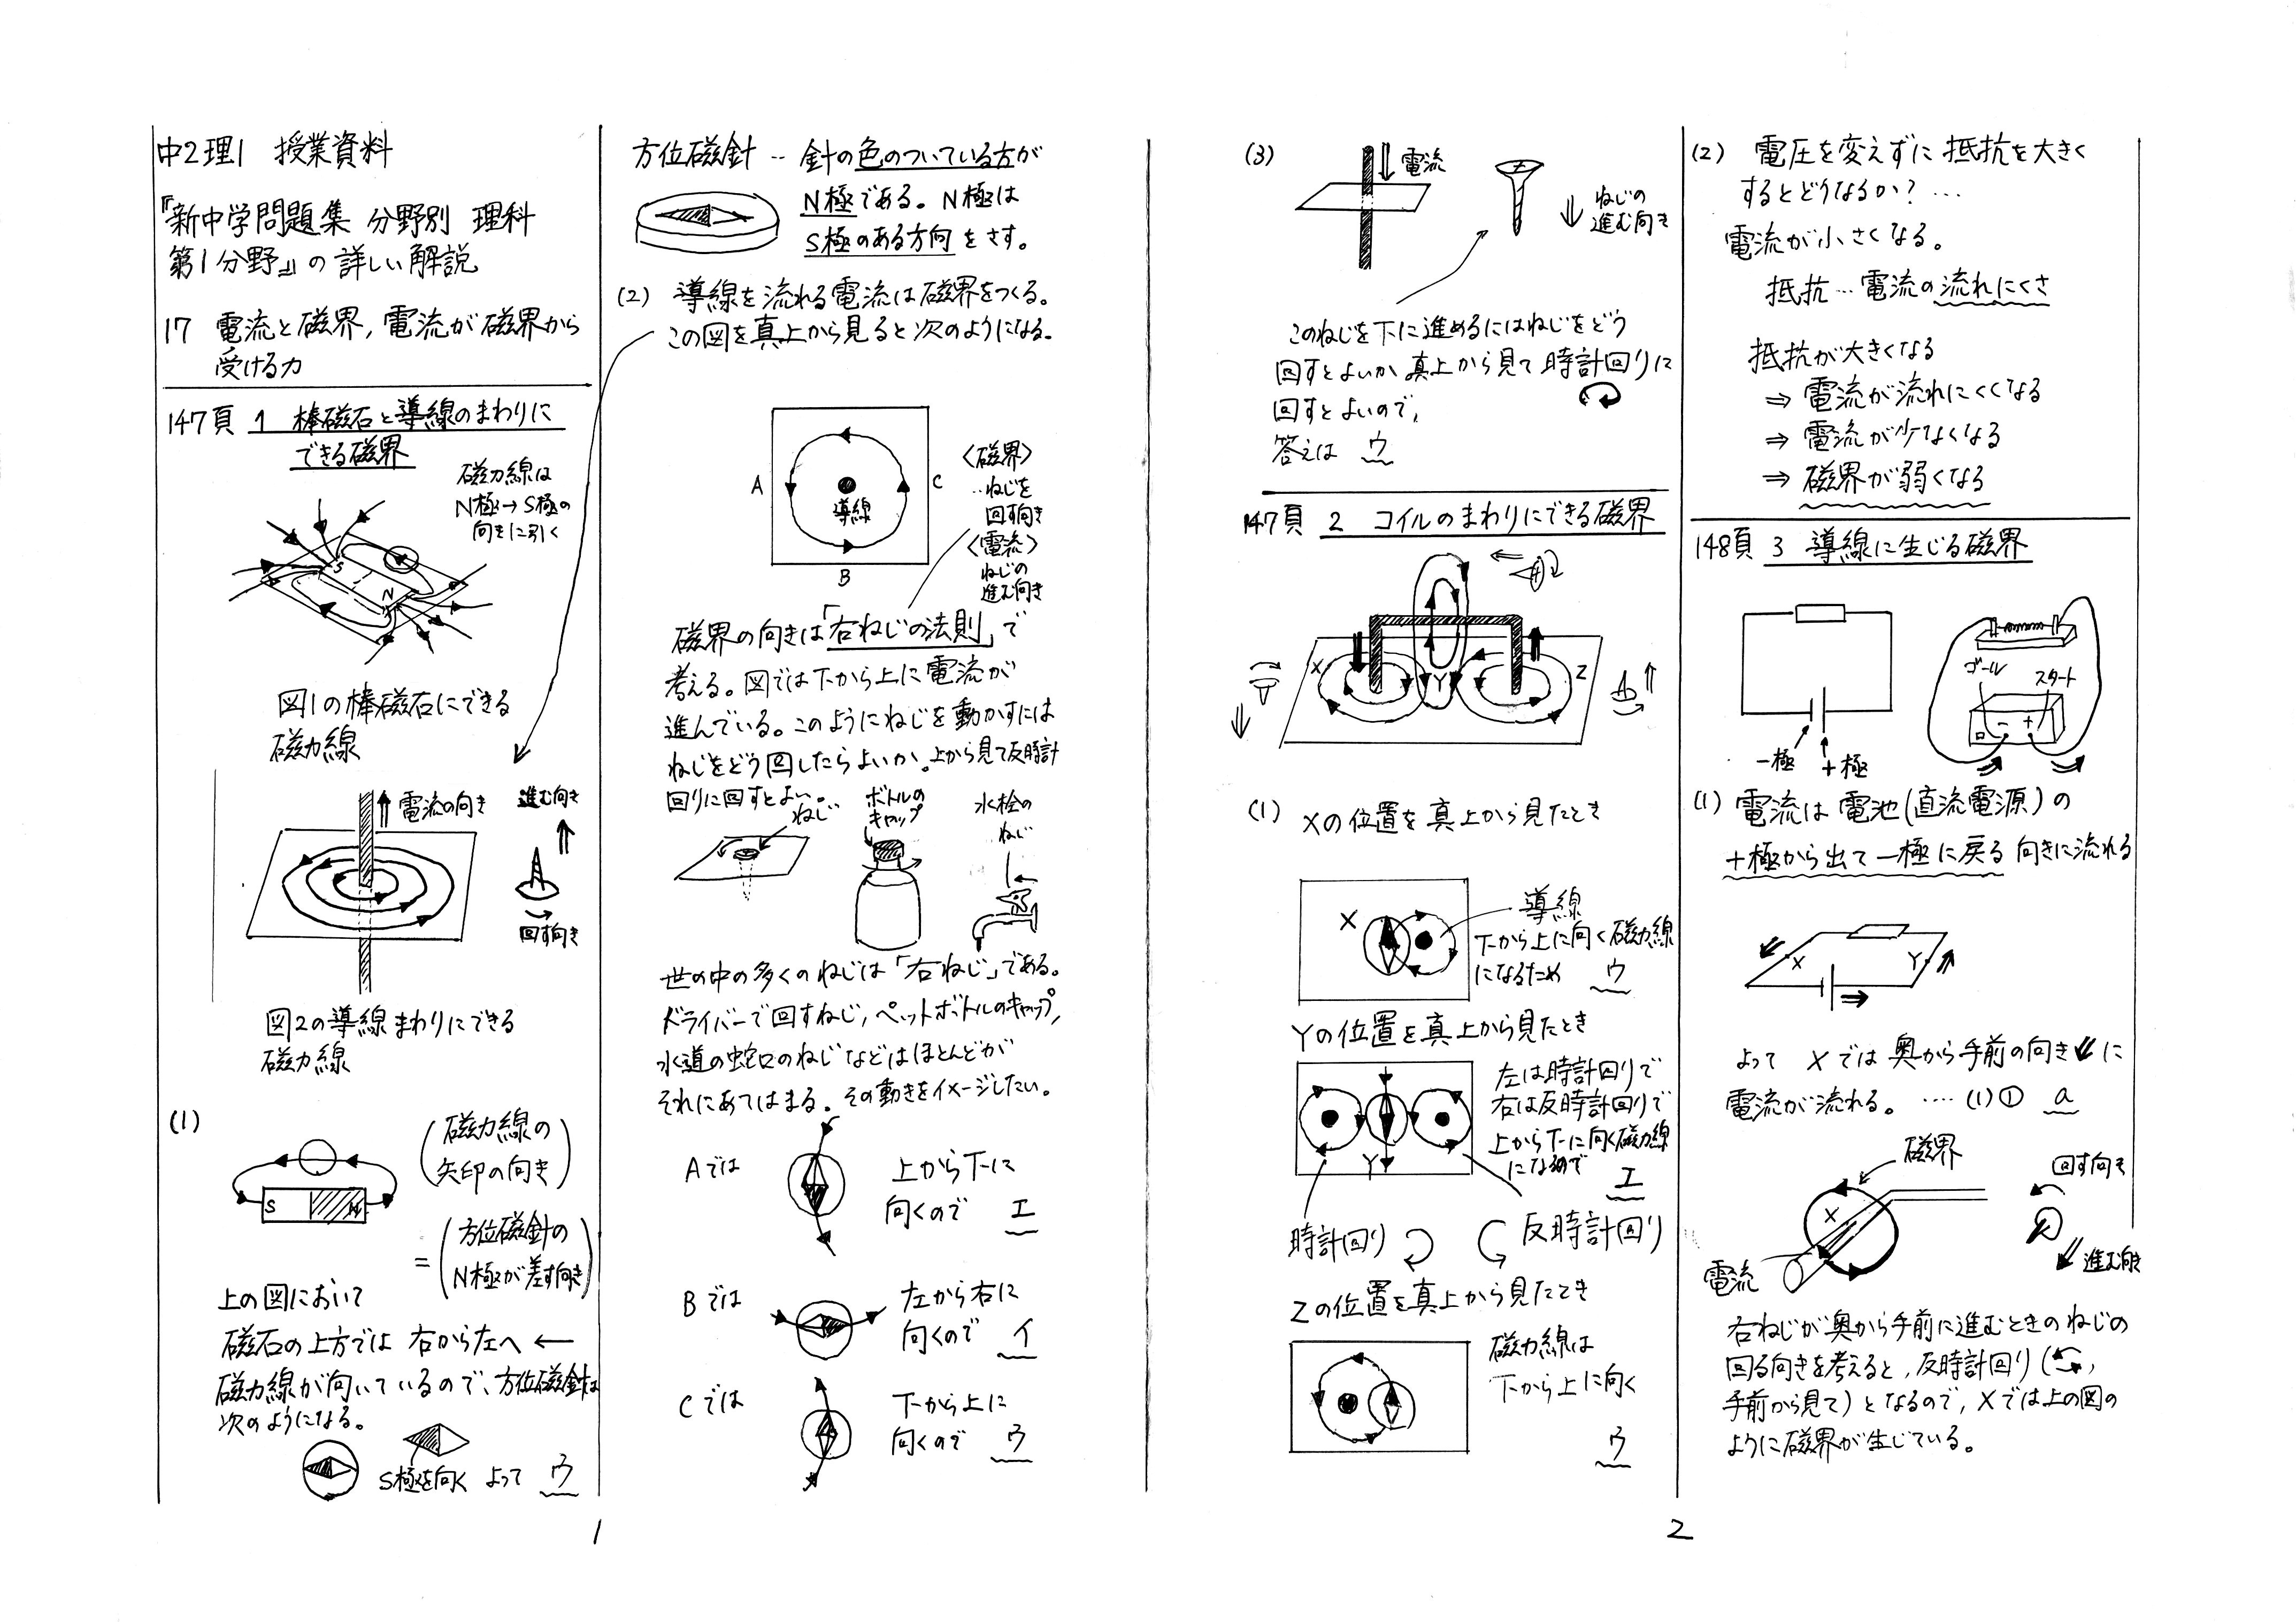 中2理1 授業資料
『新中学問題集 分野別 理科
第1分野』の詳しい解説
17 電流と磁界，電流が磁界から
受ける力
147頁 1 棒磁石と導線のまわりに
できる磁界
磁力線は
N極→S極の
向きに引く
S
N
図1の棒磁石にできる
磁力線
電流の向き
進む向き
回す向き
図2の導線まわりにできる
磁力線
(1)
磁力線の
矢印の向き
S
N
=
方位磁針の
N極が差す向き
上の図において
磁石の上方では 右から左へ ←
磁力線が向いているので、方位磁針は
次のようになる。
S極を向く よって ウ
方位磁針 … 針の色のついている方が
N極である。N極は
S極のある方向をさす。
(2) 導線を流れる電流は磁界をつくる。
この図を真上から見ると次のようになる。
A
導線
C
B
〈磁界〉
…ねじを
回す向き
〈電流〉
ねじの
進む向き
磁界の向きは「右ねじの法則」で
考える。図では下から上に電流が
進んでいる。このようにねじを動かすには
ねじをどう回したらよいか。上から見て反時計
回りに回すとよい。
ねじ
ボトルの
キャップ
水栓の
ねじ
世の中の多くのねじは「右ねじ」である。
ドライバーで回すねじ，ペットボトルのキャップ，
水道の蛇口のねじなどはほとんどが
それにあてはまる。その動きをイメージしたい。
Aでは
上から下に
向くので エ
Bでは
左から右に
向くので イ
Cでは
下から上に
向くので ウ
1
(3)
電流
ねじの
進む向き
このねじを下に進めるにはねじをどう
回すとよいか 真上から見て時計回りに
回すとよいので，
答えは ウ
147頁 2 コイルのまわりにできる磁界
X
Y
Z
(1) Xの位置を真上から見たとき
X
導線
下から上に向く磁力線
になるため ウ
Yの位置を真上から見たとき
Y
左は時計回りで
右は反時計回りで
上から下に向く磁力線
になるので
エ
時計回り
反時計回り
Zの位置を真上から見たとき
磁力線は
下から上に向く
ウ
(2) 電圧を変えずに抵抗を大きく
するとどうなるか？…
電流が小さくなる。
抵抗…電流の流れにくさ
抵抗が大きくなる
⇒ 電流が流れにくくなる
⇒ 電流が少なくなる
⇒ 磁界が弱くなる
148頁 3 導線に生じる磁界
ゴール
スタート
- +
-極
+極
(1) 電流は電池(直流電源)の
+極から出て-極に戻る向きに流れる
X
Y
よって Xでは奥から手前の向き↙に
電流が流れる。 ‥‥(1)① a
磁界
回す向き
X
電流
進む向き
右ねじが奥から手前に進むときのねじの
回る向きを考えると，反時計回り(
手前から見て)となるので，Xでは上の図の
ように磁界が生じている。
2